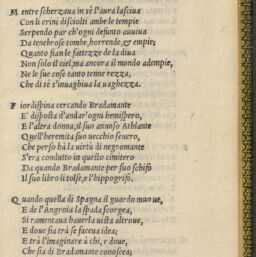 Mentre scherzaua in sè l'aura lasciua
Con li crini disciolti ambe le tempie
Serpendo par ch'ogni defunto auuiua
Da tenebrose tombe, horrende, & empie;
Quanto sian le fattezze de la diua
Non solo il ciel, ma ancora il mondo adempie,
Ne le sue cose tanto tenne rezza,
Che di sè s'inuaghiua la vaghezza.
Fiordispina cercando Bradamante
E' disposta d'andar'ogni hemispero,
E l'altra donna, il suo annoso Athlante
Quell'heremita suo vecchio seuero,
Che perso hà la uirtù di negromante
S'era condutto in questo cimitero
Da quando Bradamante per suo schifo
Il suo libro li tolse, e l'hippogrifo.
Quando quella di Spagna il guardo muoue,
E de l'Angroia la spada scorgea,
Si ramentaua hauerla uista altroue,
E doue sia trà se facea idea;
E trà l'imaginare à chi, e doue,
Che sia di Bradamante conoscea;